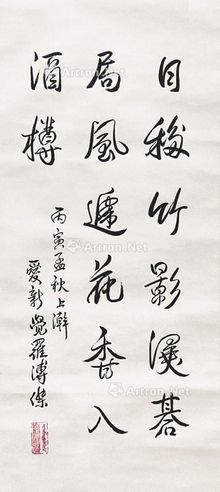 日移竹影溪碁
局風遞花香入
酒樽
丙寅孟秋上澣
愛新覺羅溥傑
Artron.Net